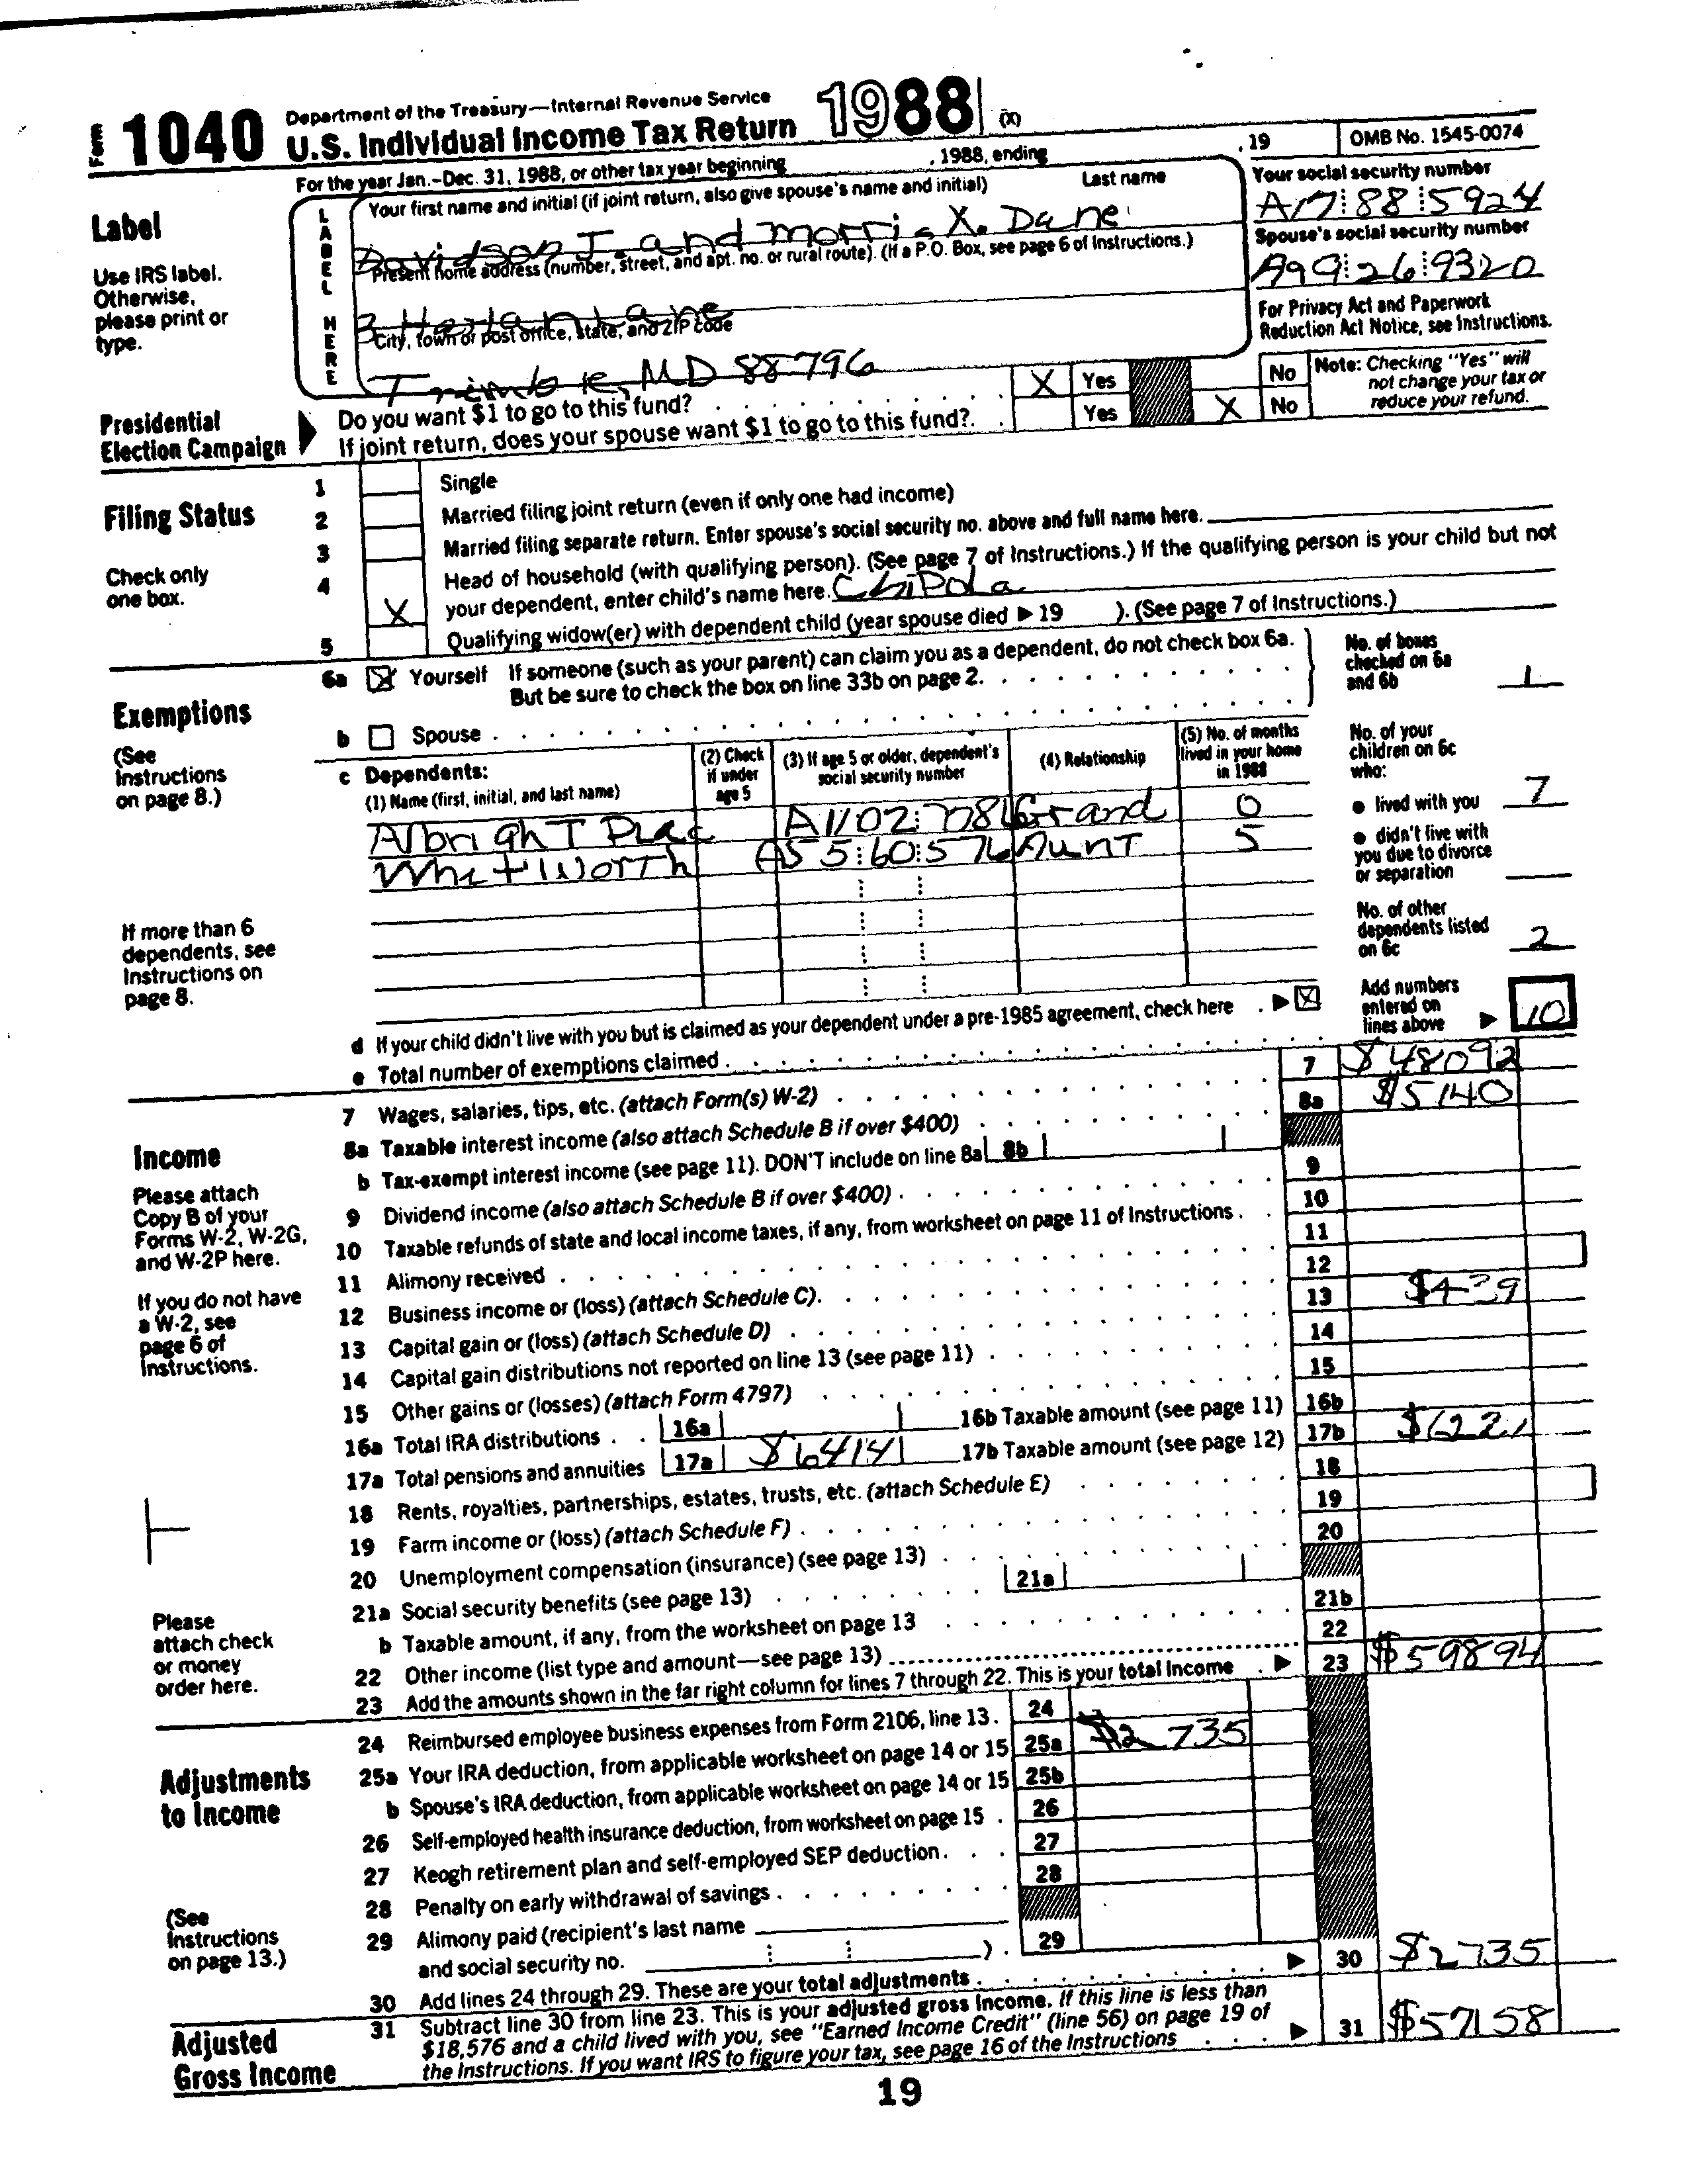 Form 1040 Department of the Treasury—Internal Revenue Service
U.S. Individual Income Tax Return 1988 (X)
For the year Jan.-Dec. 31, 1988, or other tax year beginning , 1988, ending , 19 OMB No. 1545-0074
Label
Use IRS label. Otherwise, please print or type.
LABEL HERE
Your first name and initial (if joint return, also give spouse's name and initial) Last name
Davidson J. and Morris X. Dane
Your social security number
A17 88 5924
Present home address (number, street, and apt. no. or rural route). (If a P.O. Box, see page 6 of Instructions.)
3 Harlan Lane
Spouse's social security number
A99 26 9320
City, town or post office, state, and ZIP code
Trimble, MD 88796
For Privacy Act and Paperwork Reduction Act Notice, see Instructions.
Presidential Election Campaign
Do you want $1 to go to this fund? X Yes No
If joint return, does your spouse want $1 to go to this fund? Yes X No
Note: Checking "Yes" will not change your tax or reduce your refund.
Filing Status
Check only one box.
1 Single
2 Married filing joint return (even if only one had income)
3 Married filing separate return. Enter spouse's social security no. above and full name here.
4 X Head of household (with qualifying person). (See page 7 of Instructions.) If the qualifying person is your child but not
your dependent, enter child's name here. Chipola
5 Qualifying widow(er) with dependent child (year spouse died ▶ 19 ). (See page 7 of Instructions.)
Exemptions
(See Instructions on page 8.)
6a X Yourself If someone (such as your parent) can claim you as a dependent, do not check box 6a.
But be sure to check the box on line 33b on page 2.
b Spouse
No. of boxes checked on 6a and 6b 1
c Dependents:
(1) Name (first, initial, and last name) (2) Check if under age 5 (3) If age 5 or older, dependent's social security number (4) Relationship (5) No. of months lived in your home in 1988
Albright Grand 0
Whitworth Aunt 5
No. of your children on 6c who:
● lived with you 7
● didn't live with you due to divorce or separation
No. of other dependents listed on 6c 2
If more than 6 dependents, see Instructions on page 8.
d If your child didn't live with you but is claimed as your dependent under a pre-1985 agreement, check here ▶ X
e Total number of exemptions claimed
Add numbers entered on lines above ▶ 10
Income
Please attach Copy B of your Forms W-2, W-2G, and W-2P here.
If you do not have a W-2, see page 6 of Instructions.
Please attach check or money order here.
7 Wages, salaries, tips, etc. (attach Form(s) W-2) 7 $48092
8a Taxable interest income (also attach Schedule B if over $400) 8a $5140
b Tax-exempt interest income (see page 11). DON'T include on line 8a 8b
9 Dividend income (also attach Schedule B if over $400) 9
10 Taxable refunds of state and local income taxes, if any, from worksheet on page 11 of Instructions 10
11 Alimony received 11
12 Business income or (loss) (attach Schedule C) 12
13 Capital gain or (loss) (attach Schedule D) 13 $439
14 Capital gain distributions not reported on line 13 (see page 11) 14
15 Other gains or (losses) (attach Form 4797) 15
16a Total IRA distributions 16a 16b Taxable amount (see page 11) 16b
17a Total pensions and annuities 17a $6414 17b Taxable amount (see page 12) 17b $6221
18 Rents, royalties, partnerships, estates, trusts, etc. (attach Schedule E) 18
19 Farm income or (loss) (attach Schedule F) 19
20 Unemployment compensation (insurance) (see page 13) 20
21a Social security benefits (see page 13) 21a
b Taxable amount, if any, from the worksheet on page 13 21b
22 Other income (list type and amount—see page 13) 22
23 Add the amounts shown in the far right column for lines 7 through 22. This is your total income ▶ 23 $59894
Adjustments to Income
(See Instructions on page 13.)
24 Reimbursed employee business expenses from Form 2106, line 13. 24
25a Your IRA deduction, from applicable worksheet on page 14 or 15 25a $2735
b Spouse's IRA deduction, from applicable worksheet on page 14 or 15 25b
26 Self-employed health insurance deduction, from worksheet on page 15 26
27 Keogh retirement plan and self-employed SEP deduction 27
28 Penalty on early withdrawal of savings 28
29 Alimony paid (recipient's last name
and social security no. ) 29
30 Add lines 24 through 29. These are your total adjustments ▶ 30 $2735
Adjusted Gross Income
31 Subtract line 30 from line 23. This is your adjusted gross income. If this line is less than
$18,576 and a child lived with you, see "Earned Income Credit" (line 56) on page 19 of
the Instructions. If you want IRS to figure your tax, see page 16 of the Instructions ▶ 31 $57158
19